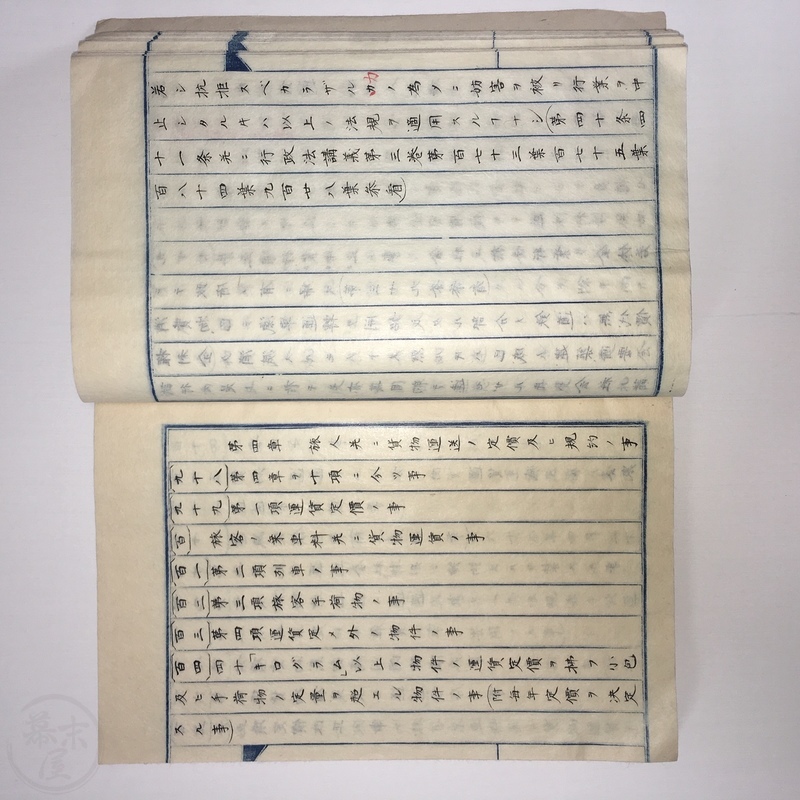 若シ抗拒スベカラザル力ノ為メニ妨害ヲ被リ行業ヲ中
止シタルキハ以上ノ法規ヲ適用スルヿナシ(第四十条四
十一条并ニ行政法講義第三巻第百七十三葉百七十五葉
百八十四葉九百廿八葉参看)
第四章 旅人并ニ貨物運送ノ定價及ヒ規約ノ事
(九十八)第四章ヲ十項ニ分ツ事
(九十九)第一項運賃定價ノ事
(百)旅客ノ乗車料并ニ貨物運賃ノ事
(百一)第二項列車ノ事
(百二)第三項旅客手荷物ノ事
(百三)第四項運賃定メ外ノ物件ノ事
(百四)四十「キログラム」以上ノ物件ノ運賃定價ヲ拂フ小包
及ヒ手荷物ノ定量ヲ超エル物件ノ事(附毎年定價ヲ決定
スル事)
幕末屋